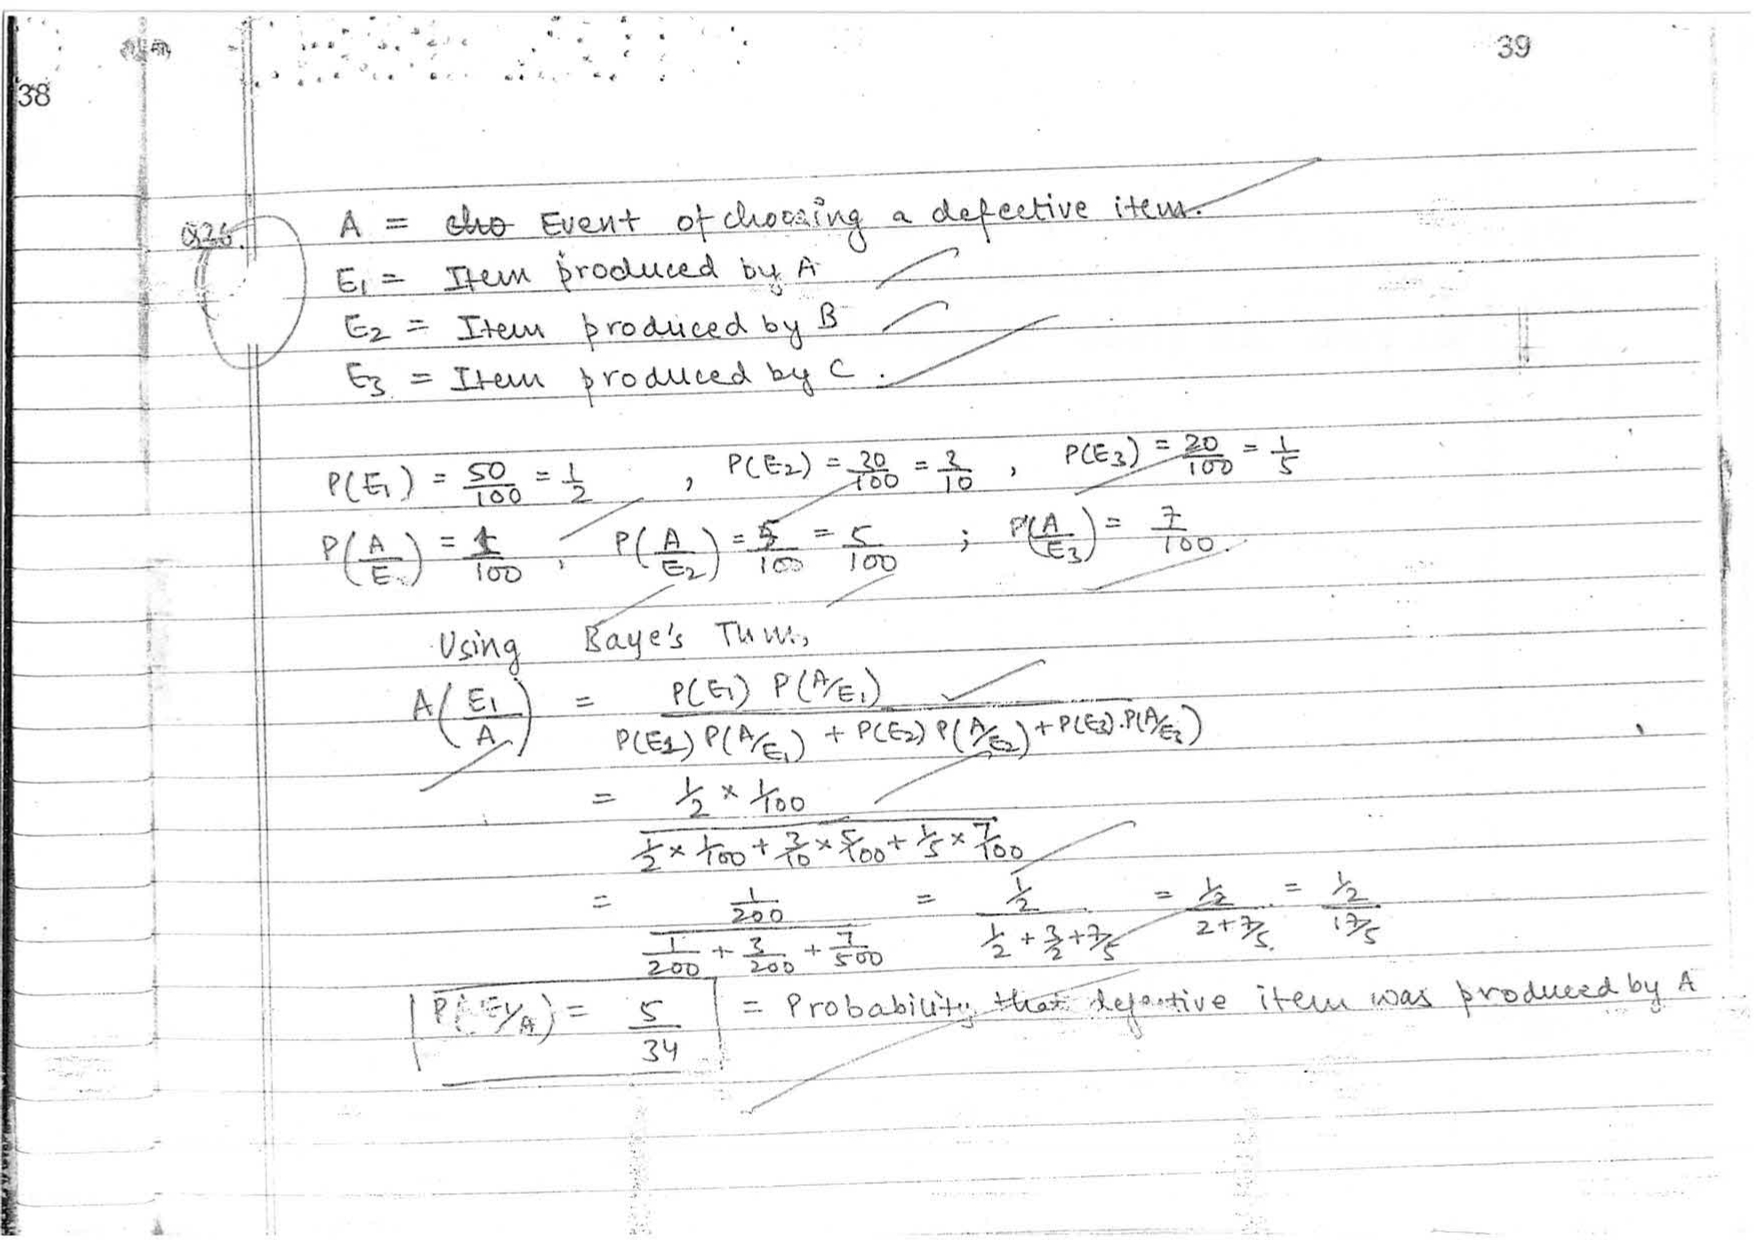 39
38
Q26.
A = cho Event of choosing a defective item.
E1 = Item produced by A
E2 = Item produced by B
E3 = Item produced by C.
P(E1) = 50/100 = 1/2 , P(E2) = 30/100 = 3/10 , P(E3) = 20/100 = 1/5
P(A/E1) = 1/100 , P(A/E2) = 5/100 = 5/100 ; P(A/E3) = 7/100.
Using Baye's Thm,
A(E1/A) = P(E1) P(A/E1) / P(E1) P(A/E1) + P(E2) P(A/E2) + P(E3).P(A/E3)
= 1/2 × 1/100 / 1/2 × 1/100 + 3/10 × 5/100 + 1/5 × 7/100
= 1/200 / 1/200 + 3/200 + 7/500 = 1/2 / 1/2 + 3/2 + 7/5 = 1/2 / 2 + 7/5 = 1/2 / 17/5
P(E1/A) = 5/34 = Probability that defective item was produced by A